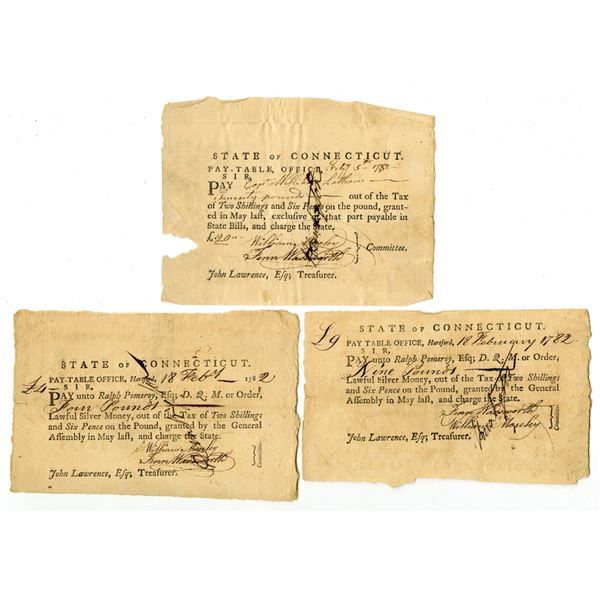 STATE OF CONNECTICUT.
PAY-TABLE, OFFICE, Feby 5th 1782
SIR,
PAY Capt William Latham
Twenty pounds out of the Tax
of Two Shillings and Six Pence on the pound, grant-
ed in May last, exclusive of that part payable in
State Bills, and charge the State.
£20
William Moseley
Fenn Wadsworth } Committee.
John Lawrence, Esq; Treasurer.
STATE OF CONNECTICUT.
PAY-TABLE OFFICE, Hartford, 18 Feby 1782
SIR,
£4 PAY unto Ralph Pomeroy, Esq; D. Q. M. or Order,
Four Pounds
Lawful Silver Money, out of the Tax of Two Shillings
and Six Pence on the Pound, granted by the General
Assembly in May last, and charge the State.
William Moseley
Fenn Wadsworth } Committee.
John Lawrence, Esq; Treasurer.
STATE OF CONNECTICUT.
£9 PAY TABLE OFFICE, Hartford, 18 February 1782
SIR,
PAY unto Ralph Pomeroy, Esq; D. Q. M. or Order,
Nine Pounds
Lawful Silver Money, out of the Tax of Two Shillings
and Six Pence on the Pound, granted by the General
Assembly in May last, and charge the State.
Fenn Wadsworth
William Moseley } Committee.
John Lawrence, Esq; Treasurer.